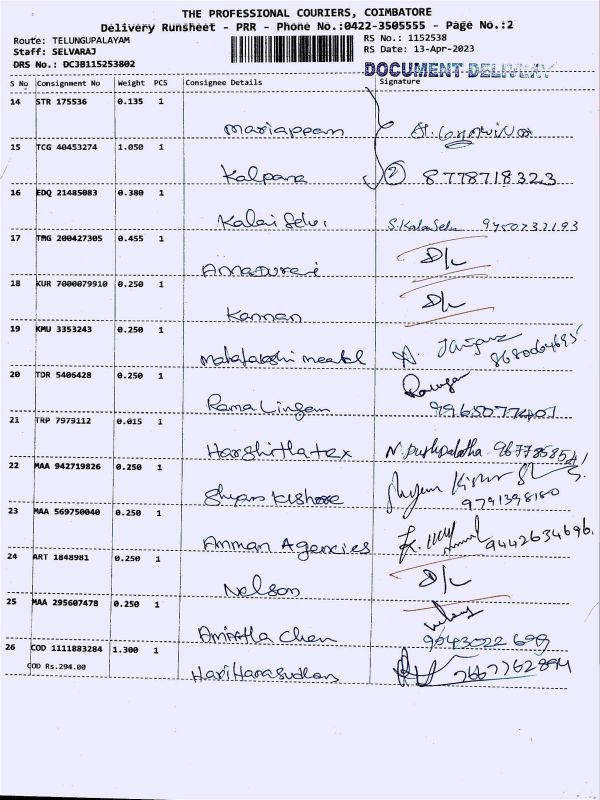 THE PROFESSIONAL COURIERS, COIMBATORE
Delivery Runsheet - PRR - Phone No.:0422-3505555 - Page No.:2
Route: TELUNGUPALAYAM RS No.: 1152538
Staff: SELVARAJ RS Date: 13-Apr-2023
DRS No.: DCJB115253802 DOCUMENT DELIVERY
S No Consignment No Weight PCS Consignee Details Signature
14 STR 175536 0.135 1
Mariappan
15 TCG 40453274 1.050 1
Kalpana 2 8778718323
16 EDQ 21485083 0.380 1
Kalai Selvi S.KalaiSelvi 9750732193
17 TMG 200427305 0.455 1
Annadurai D/L
18 KUR 7000079910 0.250 1
Kannan D/L
19 KMU 3353243 0.250 1
Mahalakshmi metal
20 TDR 5406428 0.250 1
Rama Lingam
21 TRP 7979112 0.015 1
Harshitha tex N. Pushpalatha 9677858541
22 MAA 942719826 0.250 1
Shyam Kishore Shyam Kishor 9791398180
23 MAA 569750040 0.250 1
Amman Agencies 9442634696
24 ART 1848981 0.250 1
Nelson D/L
25 MAA 295607478 0.250 1
Amirtha Chen
26 COD 1111883284 1.300 1
COD Rs.294.00 HariHarasudhan 7667762894